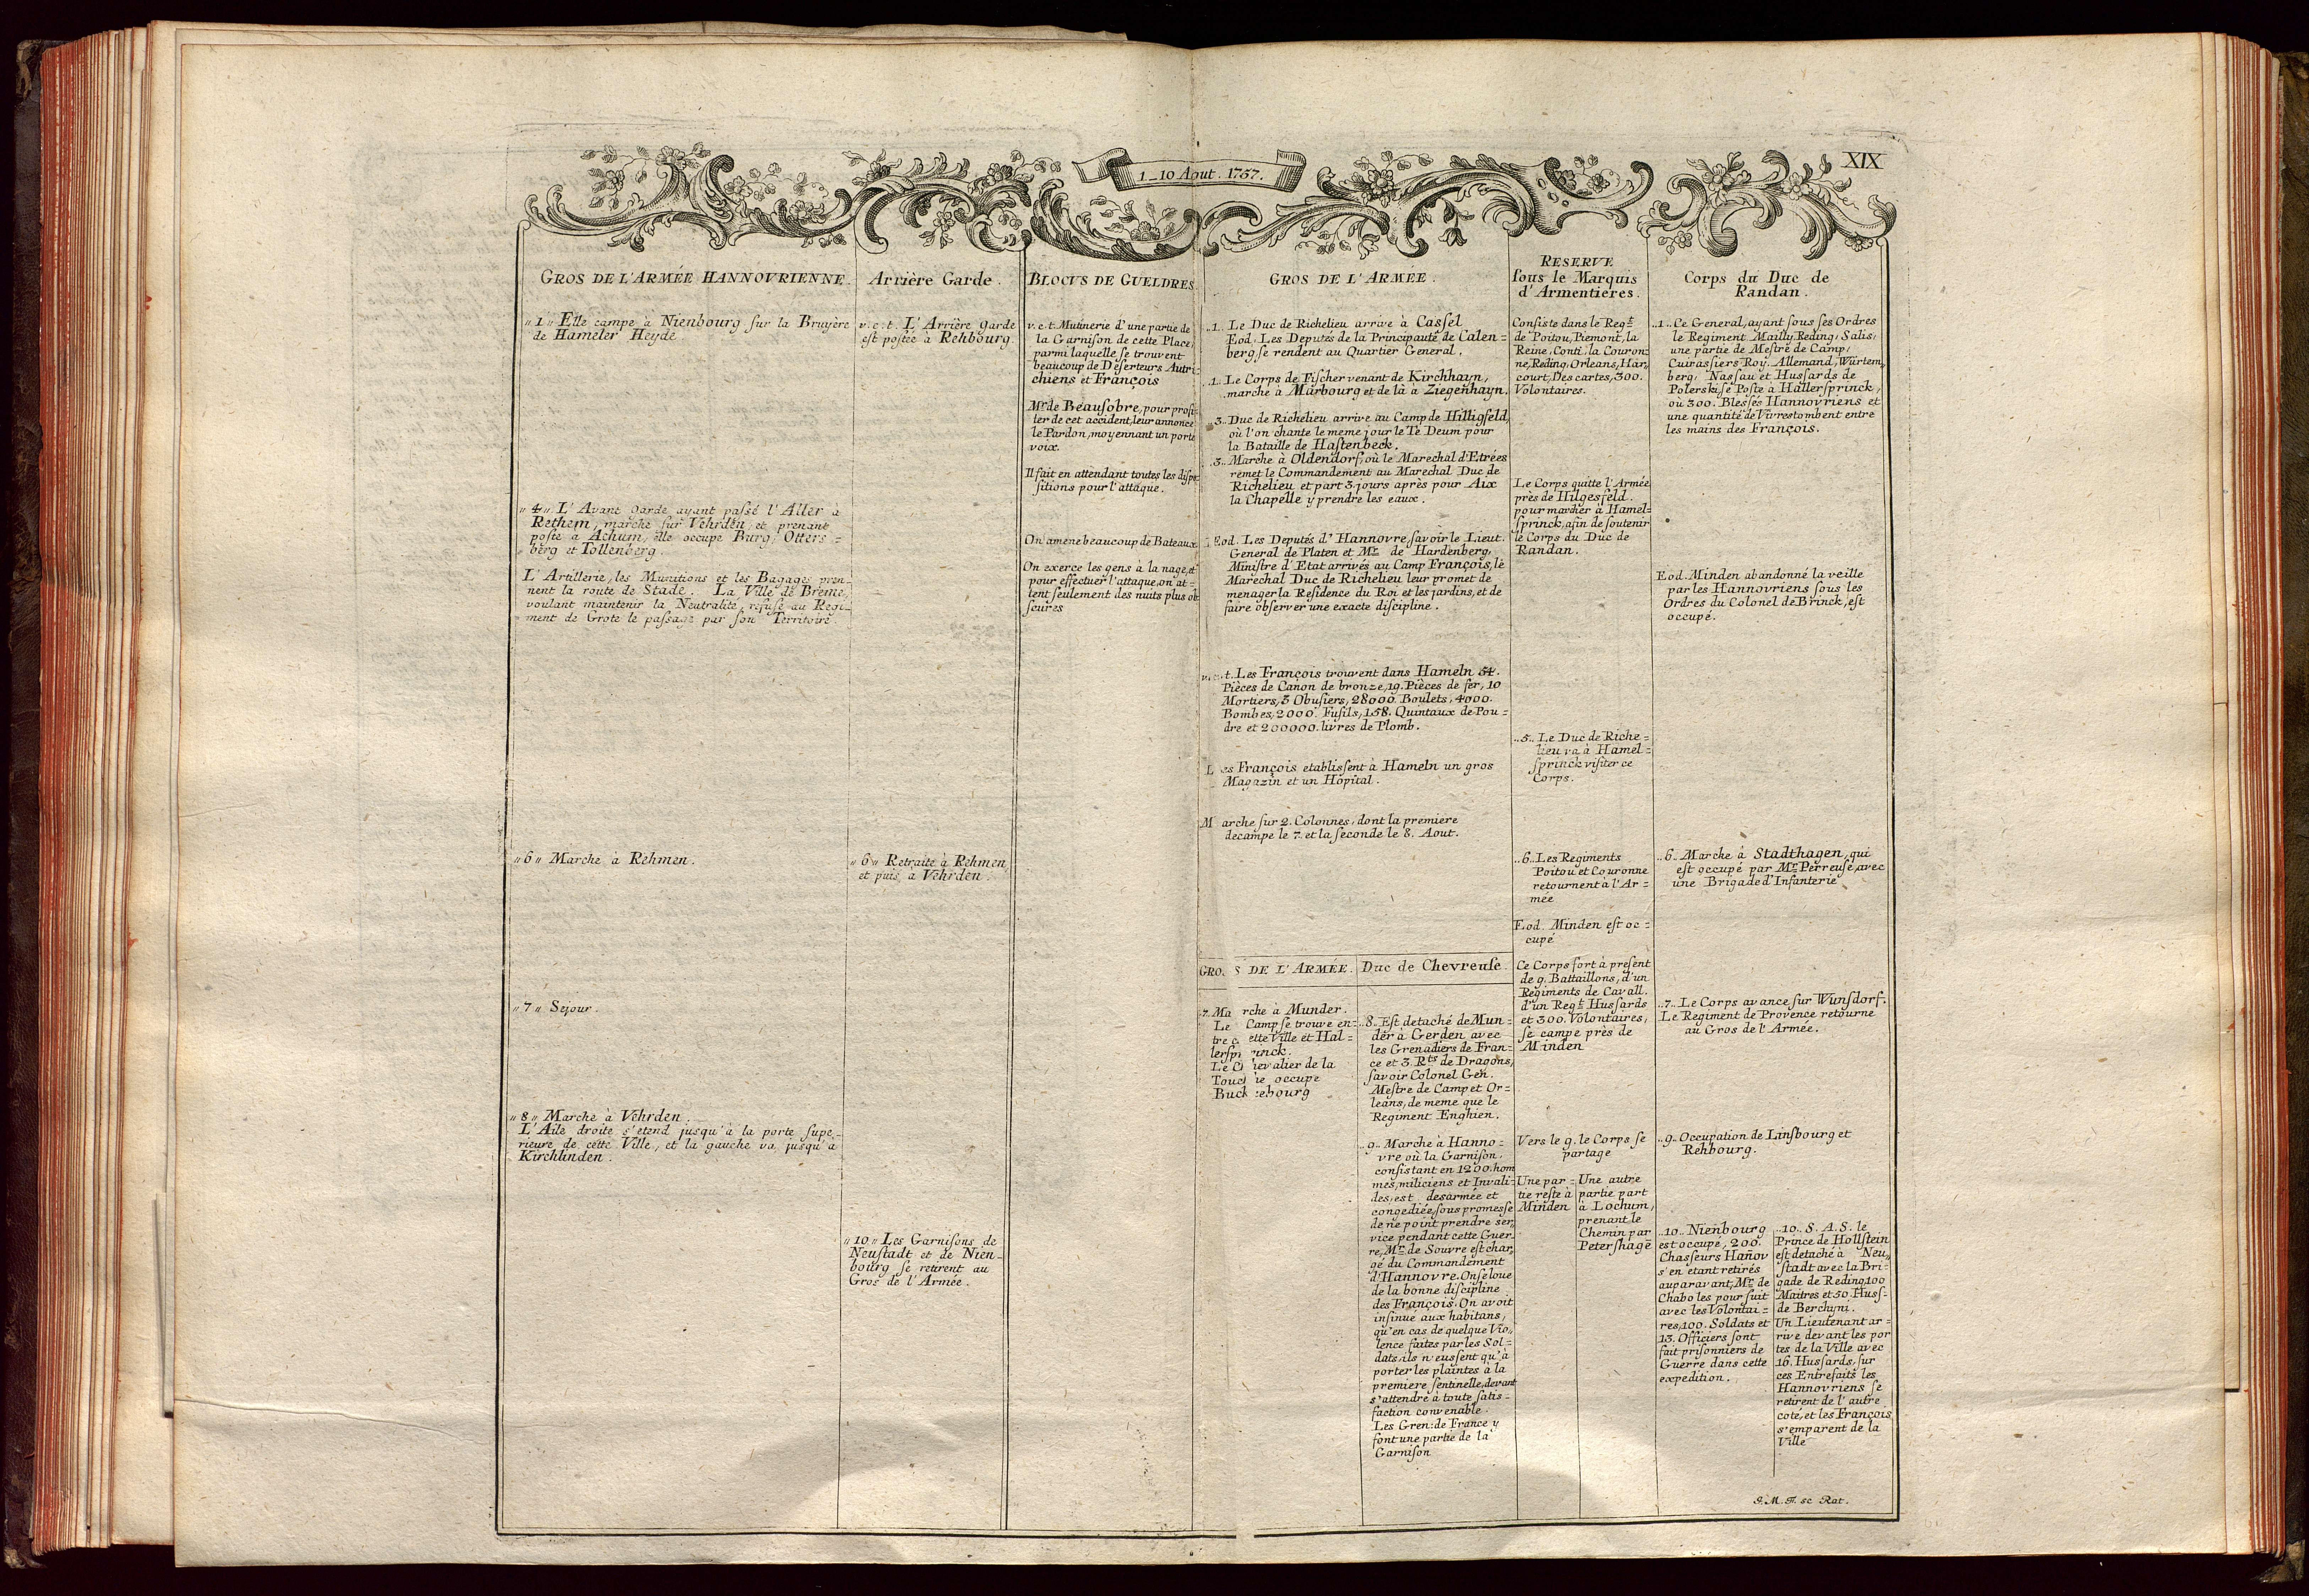 1_10 Aout. 1757.
XIX
GROS DE L'ARMÉE HANNOVRIENNE.
„1„ Elle campe à Nienbourg sur la Bruyère
de Hameler Heyde
„4„ L'Avant Garde ayant passé l'Aller à
Rethem, marche sur Vehrden, et prenant
poste a Achum, elle occupe Burg, Otters=
berg et Tollenberg.
L'Artillerie, les Munitions et les Bagages pren-
nent la route de Stade. La Ville de Breme,
voulant maintenir la Neutralite, refuse au Regi-
ment de Grote le passage par son Territoire.
„6„ Marche à Rehmen.
„7„ Sejour.
„8„ Marche à Vehrden.
L'Aile droite s'etend jusqu'à la porte supe-
rieure de cette Ville, et la gauche va jusqu'à
Kirchlinden.
Arrière Garde.
v.c.t. L'Arrière Garde
est postée a Rehbourg
„6„ Retraite à Rehmen,
et puis à Vehrden.
„10„ Les Garnisons de
Neustadt et de Nien-
bourg se retirent au
Gros de l'Armée.
BLOCVS DE GUELDRES
v.c.t. Mutinerie d'une partie de
la Garnison de cette Place,
parmi laquelle se trouvent
beaucoup de Deserteurs Autri-
chiens et François
Mr. de Beausobre, pour profi-
ter de cet accident, leur annonce
le Pardon, moyennant un porte
voix.
Il fait en attendant toutes les dispo-
sitions pour l'attaque.
On amene beaucoup de Bateaux.
On exerce les gens à la nage, et
pour effectuer l'attaque, on at=
tent seulement des nuits plus ob
scures
GROS DE L'ARMÉE.
„1„ Le Duc de Richelieu arrive à Cassel
Eod. Les Deputés de la Principauté de Calen=
berg, se rendent au Quartier General.
„1„ Le Corps de Fischer venant de Kirchhayn,
marche à Marbourg et de là à Ziegenhayn.
„3„ Duc de Richelieu arrive au Camp de Hilligsfeld,
où l'on chante le meme jour le Te Deum pour
la Bataille de Hastenbeck.
„3„ Marche à Oldendorf, où le Marechal d'Etrées
remet le Commandement au Marechal Duc de
Richelieu et part 3. jours après pour Aix
la Chapelle y prendre les eaux.
Eod. Les Deputés d'Hannovre, savoir le Lieut.
General de Platen et Mr. de Hardenberg,
Ministre d'Etat arrivés au Camp François, le
Marechal Duc de Richelieu leur promet de
menager la Residence du Roi et les jardins, et de
faire observer une exacte discipline.
v.c.t. Les François trouvent dans Hameln 54.
Pièces de Canon de bronze, 19. Pièces de fer, 10
Mortiers, 3 Obusiers, 28000 Boulets, 4000.
Bombes, 2000. Fusils, 158. Quintaux de Pou=
dre et 200000. livres de Plomb.
Les François etablissent à Hameln un gros
Magazin et un Hopital.
Marche sur 2. Colonnes, dont la premiere
decampe le 7. et la seconde le 8. Aout.
GROS DE L'ARMÉE.
7. Marche à Munder.
Le Camp se trouve en=
tre cette Ville et Hal=
lersprinck.
Le Chevalier de la
Touche occupe
Buckebourg
Duc de Chevreuse.
„8„ Est detaché de Mun=
der à Gerden avec
les Grenadiers de Fran=
ce et 3. Rts de Dragons,
savoir Colonel Gen.
Mestre de Camp et Or=
leans, de meme que le
Regiment Enghien.
„9„ Marche à Hanno=
vre où la Garnison,
consistant en 1200. hom
mes, miliciens et Invali-
des, est desarmée et
congediée, sous promesse
de ne point prendre ser„
vice pendant cette Guer„
re, Mr. de Souvre est char„
gé du Commandement
d'Hannovre. On se loue
de la bonne discipline
des François. On avoit
insinué aux habitans,
qu'en cas de quelque Vio„
lence faites par les Sol=
dats, ils n'eussent qu'à
porter les plaintes à la
premiere sentinelle, devant
s'attendre à toute satis=
faction convenable.
Les Gren: de France y
font une partie de la
Garnison
RESERVE
sous le Marquis
d'Armentières.
Consiste dans le Regt.
de Poitou, Piemont, la
Reine, Conti, la Couron=
ne, Reding, Orleans, Har„
court, Des cartes, 300.
Volontaires.
Le Corps quitte l'Armée
près de Hilgesfeld.
pour marcher à Hamel=
sprinck, afin de soutenir
le Corps du Duc de
Randan.
„5„ Le Duc de Riche=
lieu va à Hamel=
sprinck visiter ce
Corps.
„6„ Les Regiments
Poitou et Couronne
retournent à l'Ar=
mee
Eod. Minden est oc=
cupé
Ce Corps fort à present
de 9. Battaillons, d'un
Regiments de Cavall.
d'un Regt. Hussards
et 300. Volontaires,
se campe près de
Minden
Vers le 9. le Corps se
partage
Une par=
tie reste à
Minden
Une autre
partie part
à Lochum,
prenant le
Chemin par
Petershage
Corps du Duc de
Randan.
„1„ Ce General, ayant sous ses Ordres
le Regiment Mailly, Reding, Salis,
une partie de Mestre de Camp,
Cuirassiers Roy. Allemand, Würtem„
berg, Nassau et Hussards de
Polerski, se Poste à Hallersprinck,
où 300. Blessés Hannovriens et
une quantité de Vivres tombent entre
les mains des François.
Eod. Minden abandonné la veille
par les Hannovriens sous les
Ordres du Colonel de Brinck, est
occupé.
„6„ Marche à Stadthagen, qui
est occupé par Mr. Perreuse, avec
une Brigade d'Infanterie
„7„ Le Corps avance sur Wunsdorf.
Le Regiment de Provence retourne
au Gros de l'Armée.
„9„ Occupation de Linsbourg et
Rehbourg.
„10„ Nienbourg
est occupé, 200.
Chasseurs Hañov
s'en etant retirés
auparavant, Mr. de
Chabo les pour suit
avec les Volontai=
res, 100. Soldats et
13. Officiers sont
fait prisonniers de
Guerre dans cette
expedition.
„10„ S. A. S. le
Prince de Hollstein
est detaché à Neu„
stadt avec la Bri=
gade de Reding, 100
Maitres et 50. Huss=
de Berchyni.
Un Lieutenant ar=
rive devant les por
tes de la Ville avec
16. Hussards, sur
ces Entrefaits les
Hannovriens se
retirent de l'autre
coté, et les François
s'emparent de la
Ville
sc Rat.